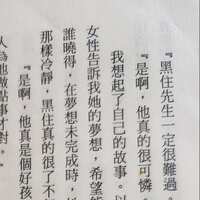 『黑住先生一定很難過。
『是啊，他真的很可憐。
我想起了自己的故事。以
女性告訴我她的夢想，希望能
誰曉得，在夢想未完成時，
那樣冷靜，黑住真的很了不
『是啊，他真是個好孩
人為他做點事才對。』